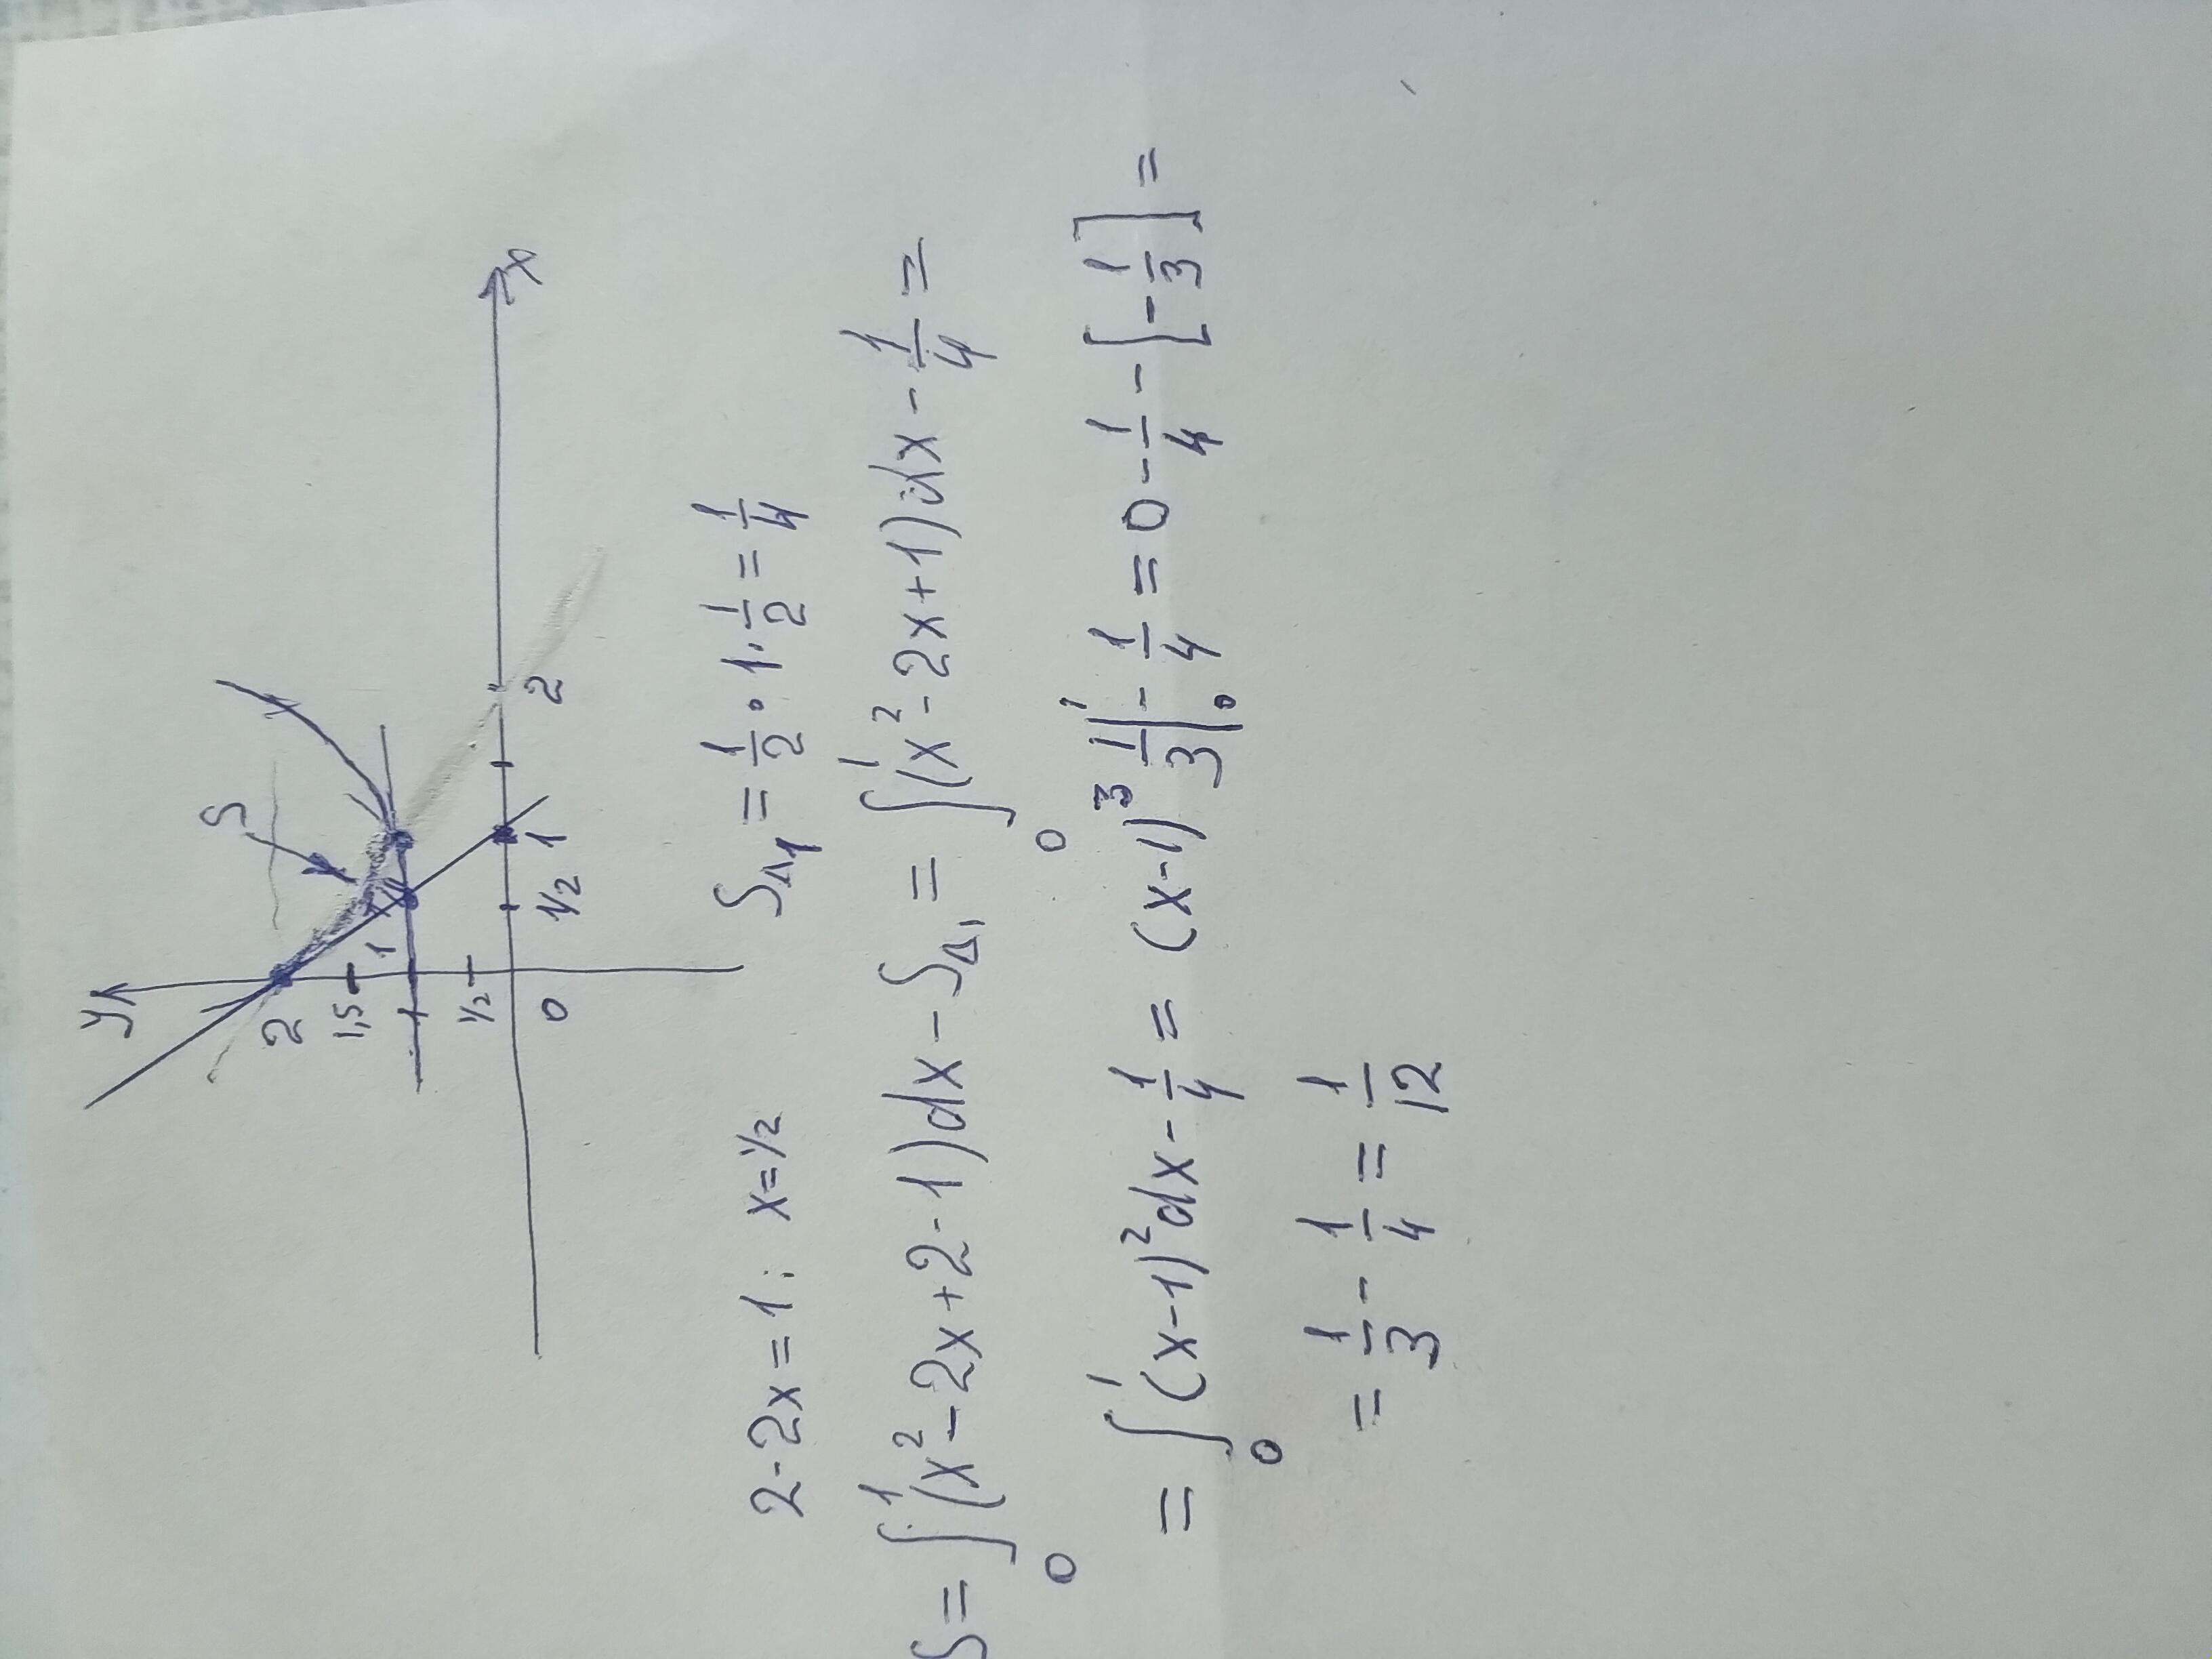 y
S
2
1,5
1
1
1/2
0
1/2
1
2
x
2-2x=1: x=1/2
S△₁ = 1/2 · 1 · 1/2 = 1/4
S = ∫₀¹(x²-2x+2-1)dx - S△₁ = ∫₀¹(x²-2x+1)dx - 1/4 =
= ∫₀¹(x-1)²dx - 1/4 = (x-1)³ 1/3 |₀¹ - 1/4 = 0 - 1/4 - [-1/3] =
= 1/3 - 1/4 = 1/12